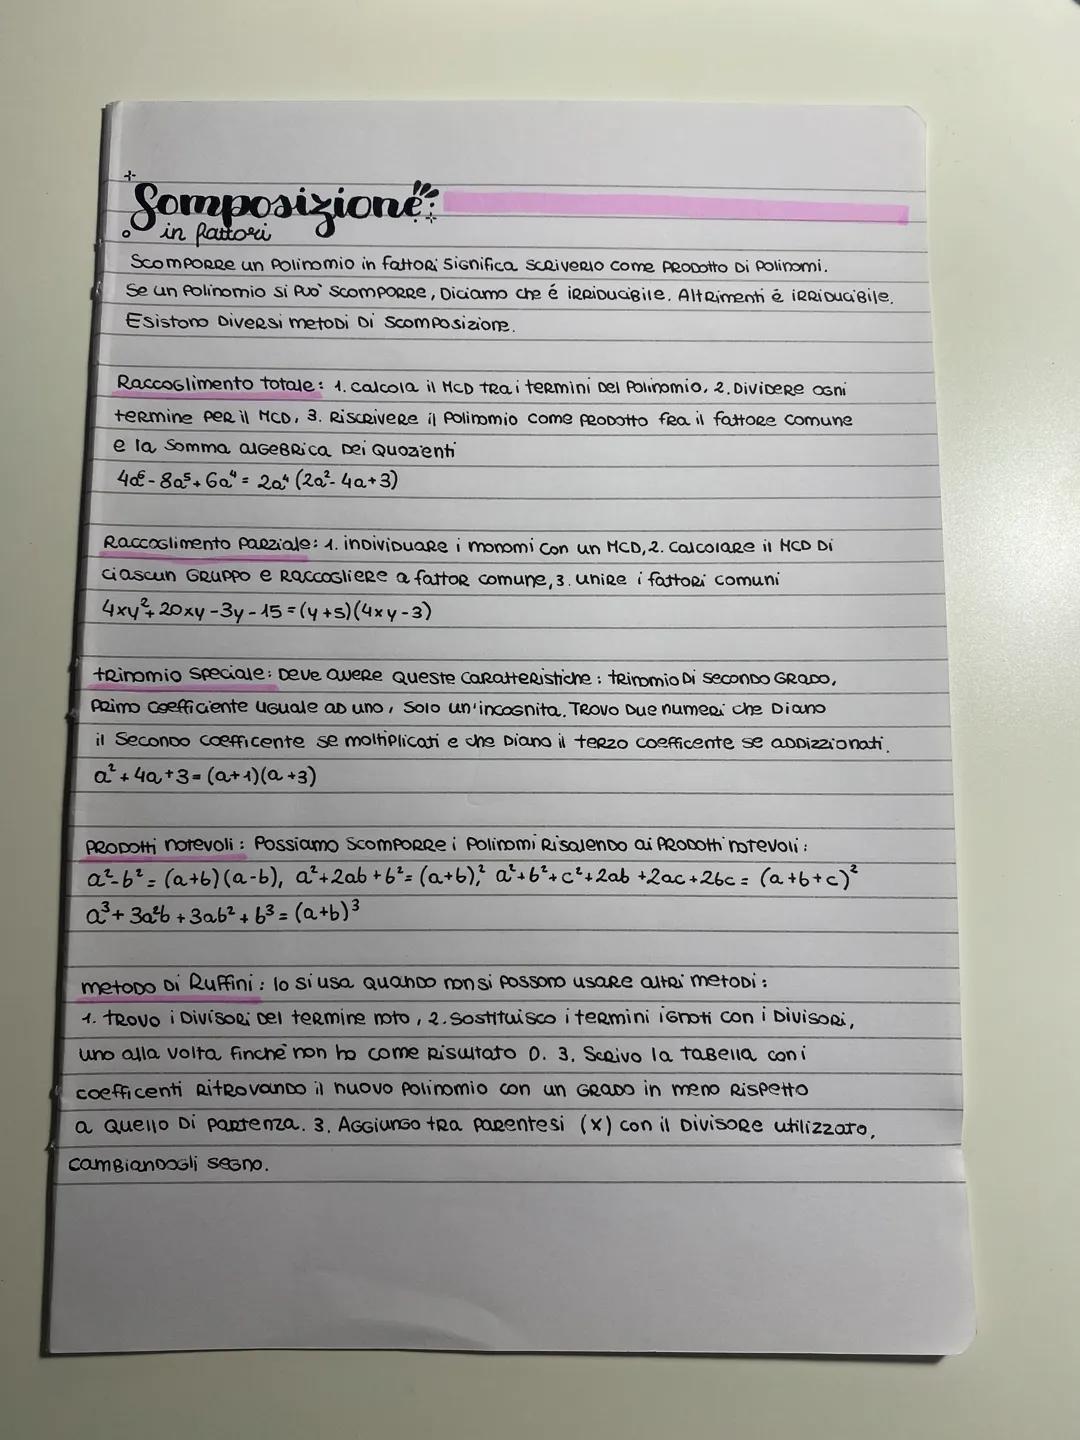 Somposizione
in fattori
Scomporre un polinomio in fattori significa scriverlo come prodotto di polinomi.
Se un polinomio si può scomporre, diciamo che é irriducibile. Altrimenti é irriducibile.
Esistono diversi metodi di scomposizione.
Raccoglimento totale: 1. calcola il MCD tra i termini del polinomio, 2. Dividere ogni
termine per il MCD, 3. Riscrivere il polinomio come prodotto fra il fattore comune
e la somma algebrica dei quozienti
4a⁶ - 8a⁵ + 6a⁴ = 2a⁴ (2a² - 4a + 3)
Raccoglimento parziale: 1. individuare i monomi con un MCD, 2. Calcolare il MCD di
ciascun gruppo e raccogliere a fattor comune, 3. unire i fattori comuni
4xy² + 20xy - 3y - 15 = (y+5)(4xy-3)
trinomio speciale: Deve avere queste caratteristiche: trinomio di secondo grado,
primo coefficiente uguale ad uno, solo un'incognita. Trovo due numeri che diano
il secondo coefficente se moltiplicati e che diano il terzo coefficente se addizzionati.
a² + 4a + 3 = (a+1)(a+3)
prodotti notevoli: Possiamo scomporre i polinomi risalendo ai prodotti notevoli:
a² - b² = (a+b)(a-b), a² + 2ab + b² = (a+b)², a² + b² + c² + 2ab + 2ac + 2bc = (a+b+c)²
a³ + 3a²b + 3ab² + b³ = (a+b)³
metodo di Ruffini: lo si usa quando non si possono usare altri metodi:
1. trovo i divisori del termine noto, 2. sostituisco i termini ignoti con i divisori,
uno alla volta finchè non ho come risultato 0. 3. Scrivo la tabella con i
coefficenti ritrovando il nuovo polinomio con un grado in meno rispetto
a quello di partenza. 3. Aggiungo tra parentesi (x) con il divisore utilizzato,
cambiandogli segno.